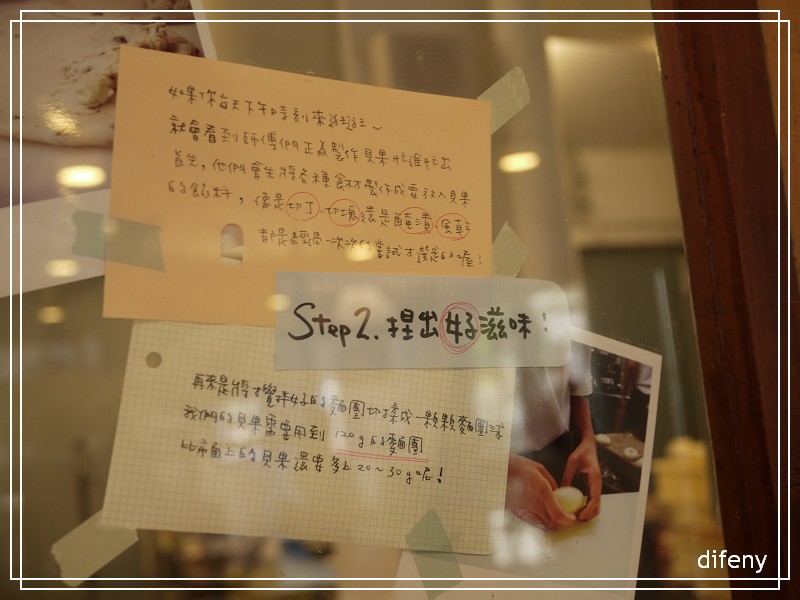 如果你每天下午時刻來逛逛~
就會看到師傅們正為製作貝果忙進忙出
首先,他們會先將各種食材製作成要放入貝果
的餡料,像是切丁、切塊還是醃漬、風乾
都是經過一次次的嘗試才誕生的喔!
Step2.捏出好滋味!
再來是將攪拌好的麵團切揉成一顆顆麵團球
我們的貝果需要用到120g的麵團
比市面上的貝果還要多上20~30g呢!
difeny